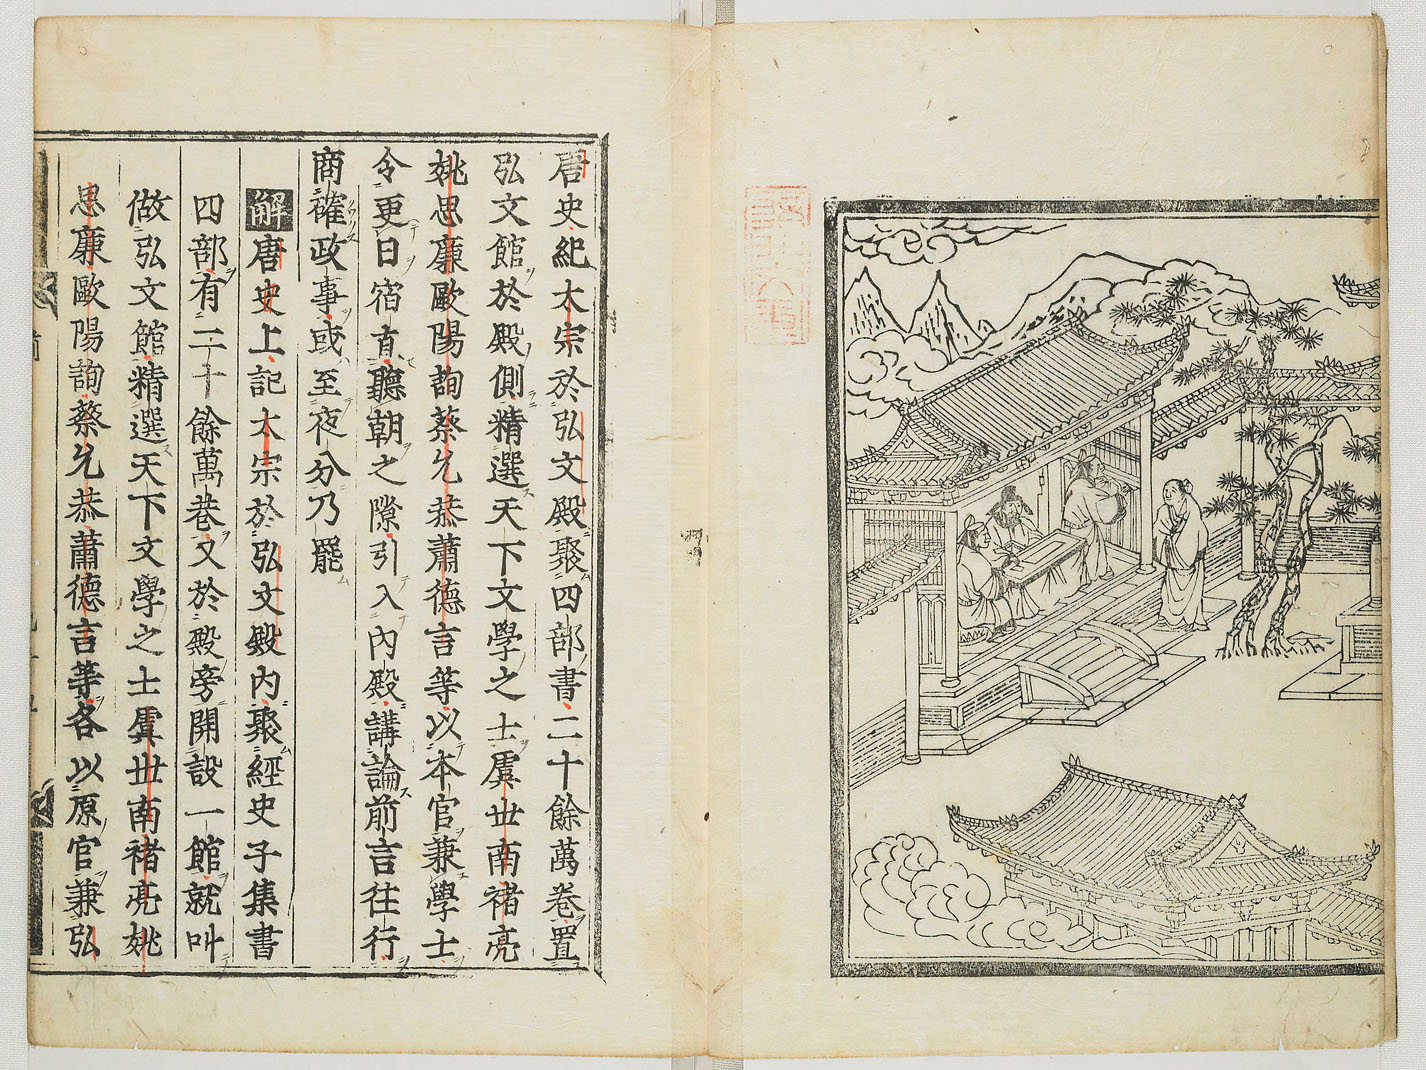 唐史紀太宗於弘文殿聚四部書二十餘萬卷置
弘文館於殿側精選天下文學之士虞世南褚亮
姚思廉歐陽詢蔡允恭蕭德言等以本官兼學士
令更日宿直聽朝之隙引入內殿講論前言往行
商確政事或至夜分乃罷
解唐史上記太宗於弘文殿內聚經史子集書
四部有二十餘萬卷又於殿旁開設一館就叫
做弘文館精選天下文學之士虞世南褚亮姚
思廉歐陽詢蔡允恭蕭德言等各以原官兼弘